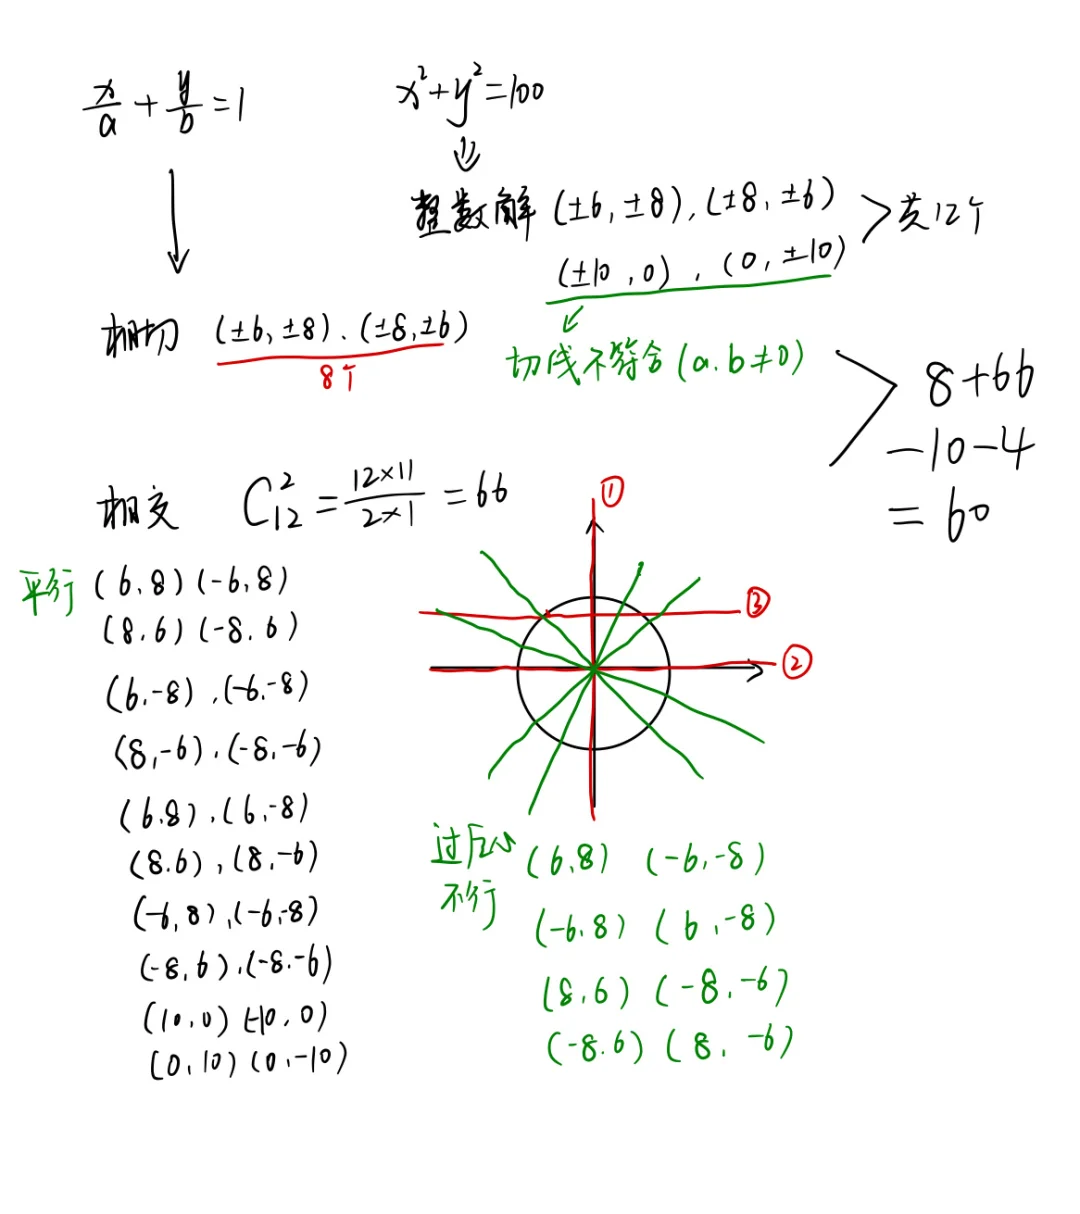 x/a + y/b = 1
x²+y²=100
整数解 (±6,±8), (±8,±6)
(±10,0), (0,±10)
共12个
相切 (±6,±8)、(±8,±6)
8个
切线不符合(a.b≠0)
8+66
-10-4
=60
相交 C₁₂² = 12×11/2×1 = 66
平行 (6,8)(-6,8)
(8.6)(-8.6)
(6.-8),(-6.-8)
(8,-6),(-8,-6)
(6.8),(6,-8)
(8.6),(8,-6)
(-6,8),(-6,-8)
(-8,6),(-8.-6)
(10,0)(-10,0)
(0,10)(0,-10)
①
③
②
过原心 (6,8) (-6,-8)
不行 (-6.8) (6,-8)
(8,6) (-8,-6)
(-8.6) (8,-6)